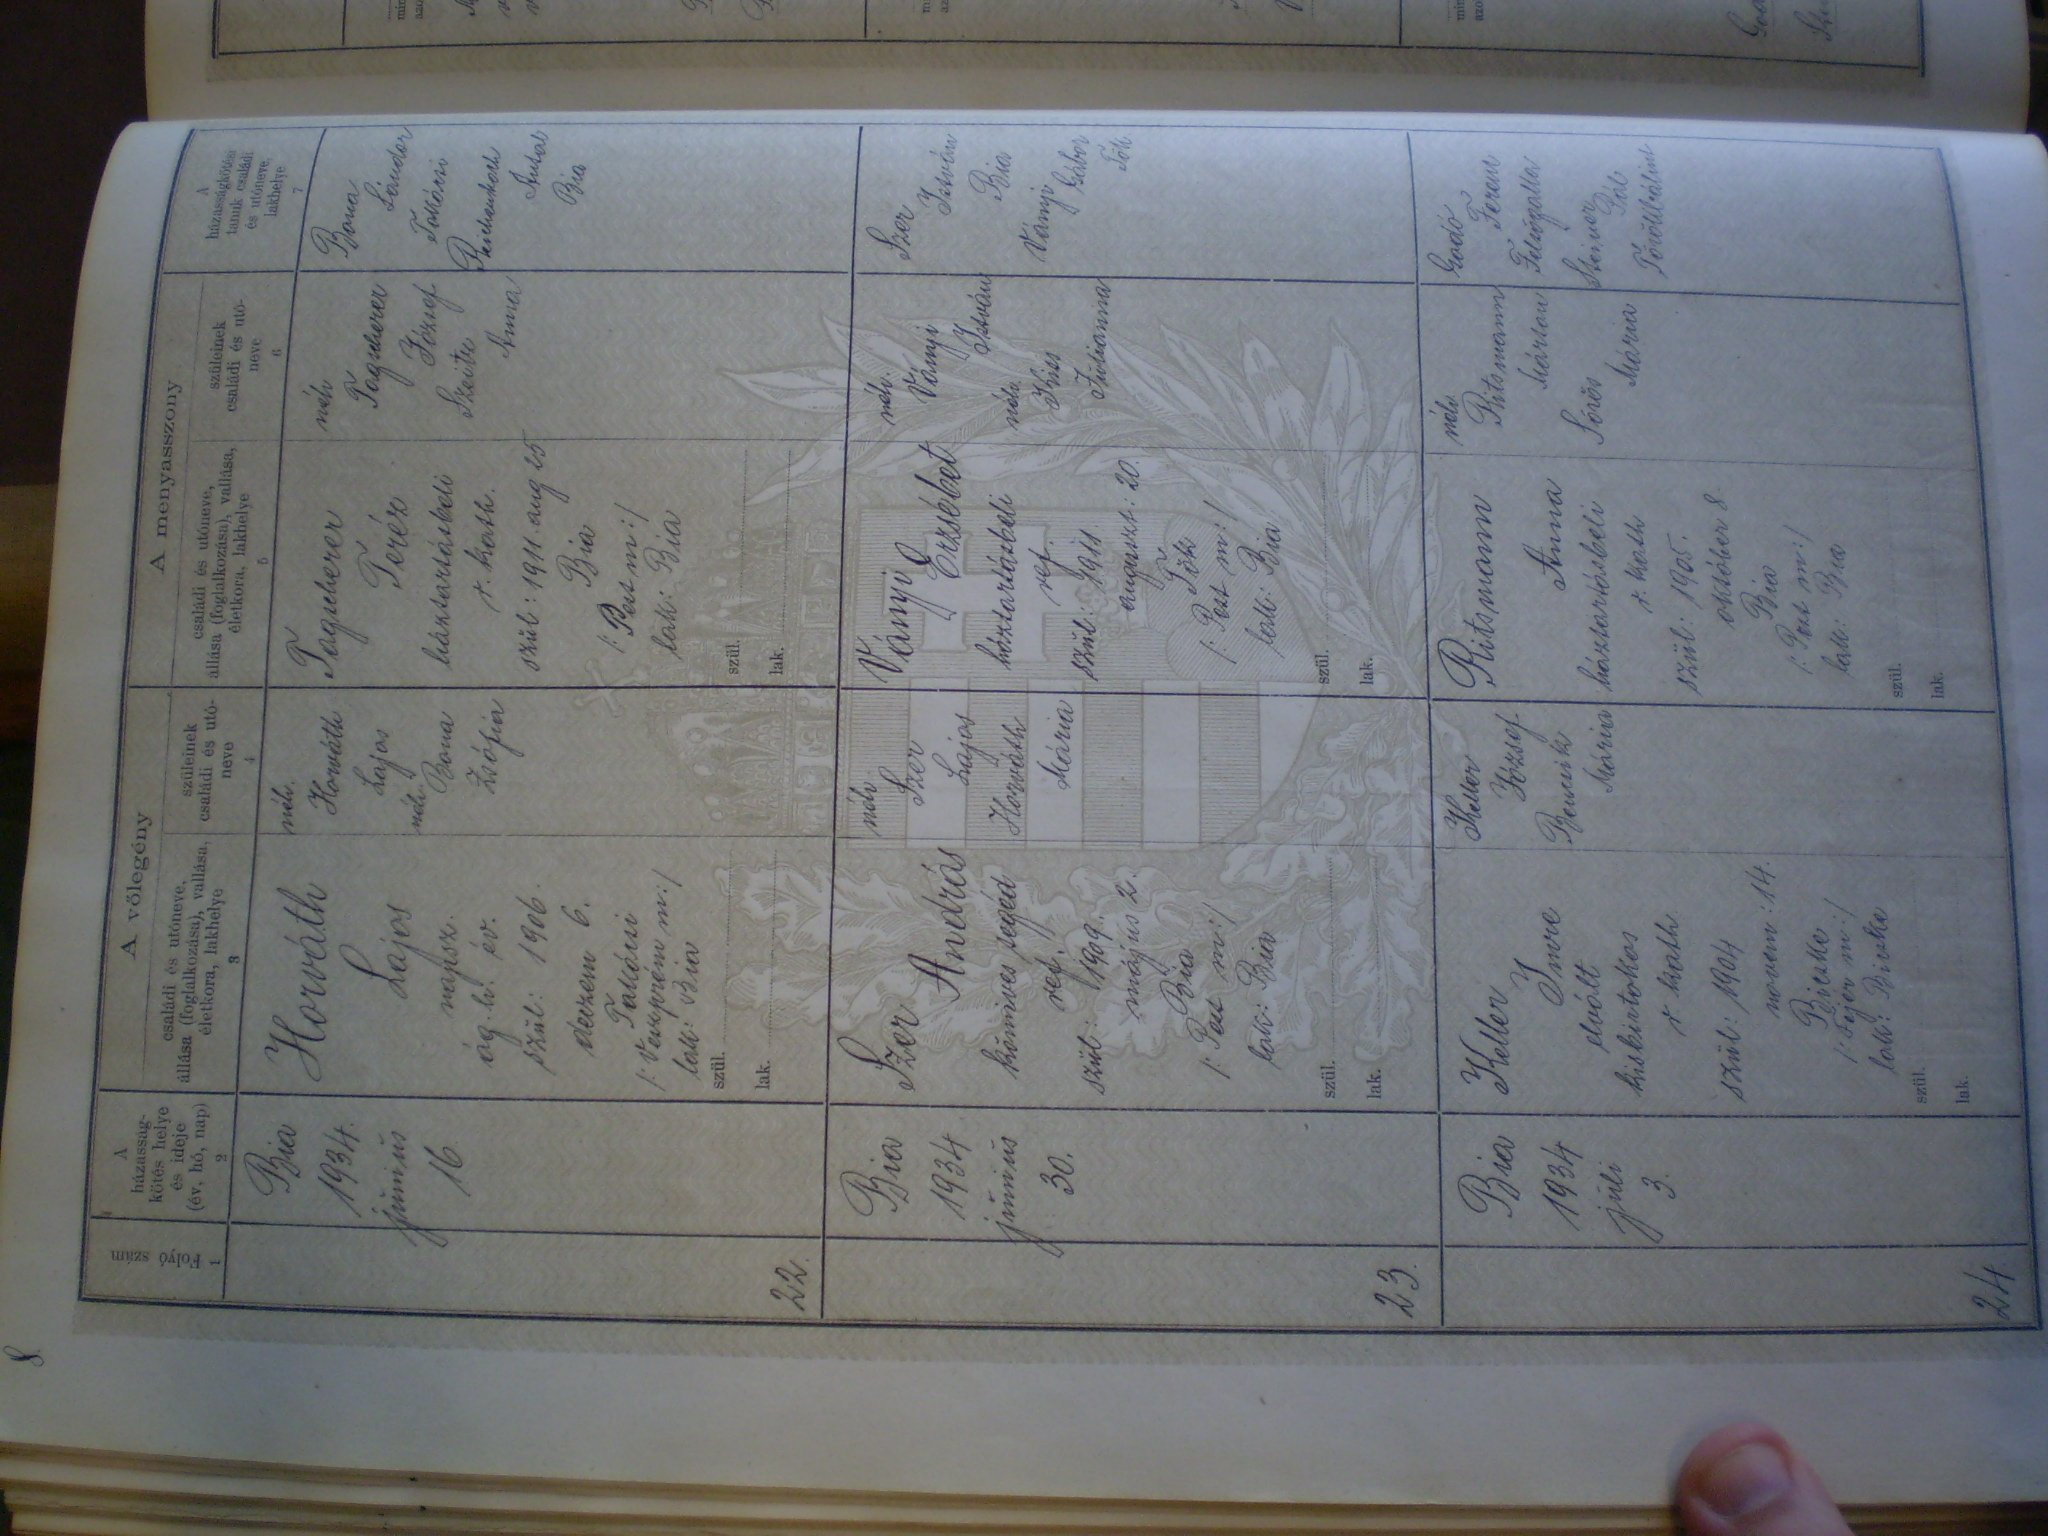 8.
A vőlegény
A menyasszony
Folyó szám
1
A
házasság-
kötés helye
és ideje
(év, hó, nap)
2
családi és utóneve,
állása (foglalkozása), vallása,
életkora, lakhelye
3
szüleinek
családi és utó-
neve
4
családi és utóneve,
állása (foglalkozása), vallása,
életkora, lakhelye
5
szüleinek
családi és utó-
neve
6
A
házasságkötési
tanuk családi
és utóneve,
lakhelye
7
22.
Bia
1934.
június
16
Horváth
Lajos
napsz.
szül: 1906.
deczem 6.
Takácsi
/: Veszprém m:/
lak: Bia
szül.
lak.
néh.
Horváth
Lajos
néh.
Bona
Zsófia
Tagscherer
Teréz
háztartásbeli
r. kath.
szül: 1911. aug 25
Bia
/: Pest m:/
lak: Bia
szül.
lak.
néh
Tagscherer
József
Szeitz
Anna
Bona
Sándor
Takácsi
Antal
Bia
23.
Bia
1934
június
30.
Szer
András
kőmives segéd
ref.
szül: 1909.
május 2.
Bia
/: Pest m:/
lak: Bia
szül.
lak.
néh
Szer
Lajos
Horváth
Mária
Ványi
Erzsébet
háztartásbeli
ref.
szül: 1911
auguszt: 20.
Tök
/: Pest m:/
lak: Bia
szül.
lak.
néh.
Ványi
István
néh.
Kiss
Julianna
Szer
István
Bia
Ványi
Gábor
Tök
24
Bia
1934
júli
3.
Keller
Imre
elvált
kisbirtokos
r kath
szül: 1904
novem: 14.
Bicske
/: Fejér m:/
lak: Bicske
szül.
lak.
Keller
József
Mária
Ritsmann
Anna
háztartásbeli
r. kath
szül: 1905.
október 8.
Bia
/: Pest m:/
lak: Bia
szül.
lak.
néh.
Ritsmann
Márton
Sörös
Mária
Godó
Ferenc
Felsőgalla
Steiner
Pál
Törökbálint